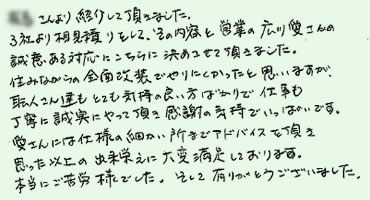 さんより紹介して頂きました。
3社より相見積りをして、その内容と営業の広川愛さんの
誠意ある対応にこちらに決めさせて頂きました。
住みながらの全面改装でやりにくかったと思いますが、
職人さん達もとても気持の良い方ばかりで仕事も
丁寧に誠実にやって頂き感謝の気持でいっぱいです。
愛さんには仕様の細かい所までアドバイスを頂き
思った以上の出来栄えに大変満足しております。
本当にご苦労様でした。そして有りがとうございました。